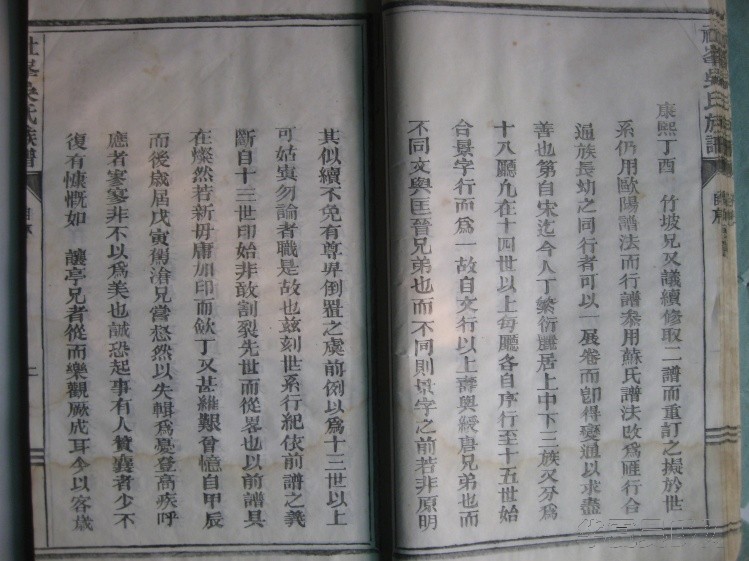 社峯吳氏族譜
康熙丁酉 竹坡兄又議續修取二譜而重訂之擬於世
系仍用歐陽譜法而行譜叅用蘇氏譜法改為匯行合
通族長幼之同行者可以一展卷而卽得變通以求盡
善也第自宋迄今人丁繁衍匯居上中下三族又分為
十八廳允在十四世以上每廳各自序行至十五世始
合景字行而為一故自文行以上壽與綬唐兄弟也而
不同文與匡晉兄弟也而不同則景字之前若非原明
其似續不免有尊卑倒置之虞前例以為十三世以上
可姑寘勿論者職是故也玆刻世系行紀依前譜之義
斷自十三世印始非敢割裂先世而從畧也以前譜具
在燦然若新毋庸加印而歛丁又甚維艱曾憶自甲辰
而後歲屆戊寅蜀滄兄嘗愁然以失輯為憂登高疾呼
應者寥寥非不以為美也誠恐起事有人贊襄者少不
復有慷慨如 讓亭兄者從而樂觀厥成耳今以客歲
社峯吳氏族譜